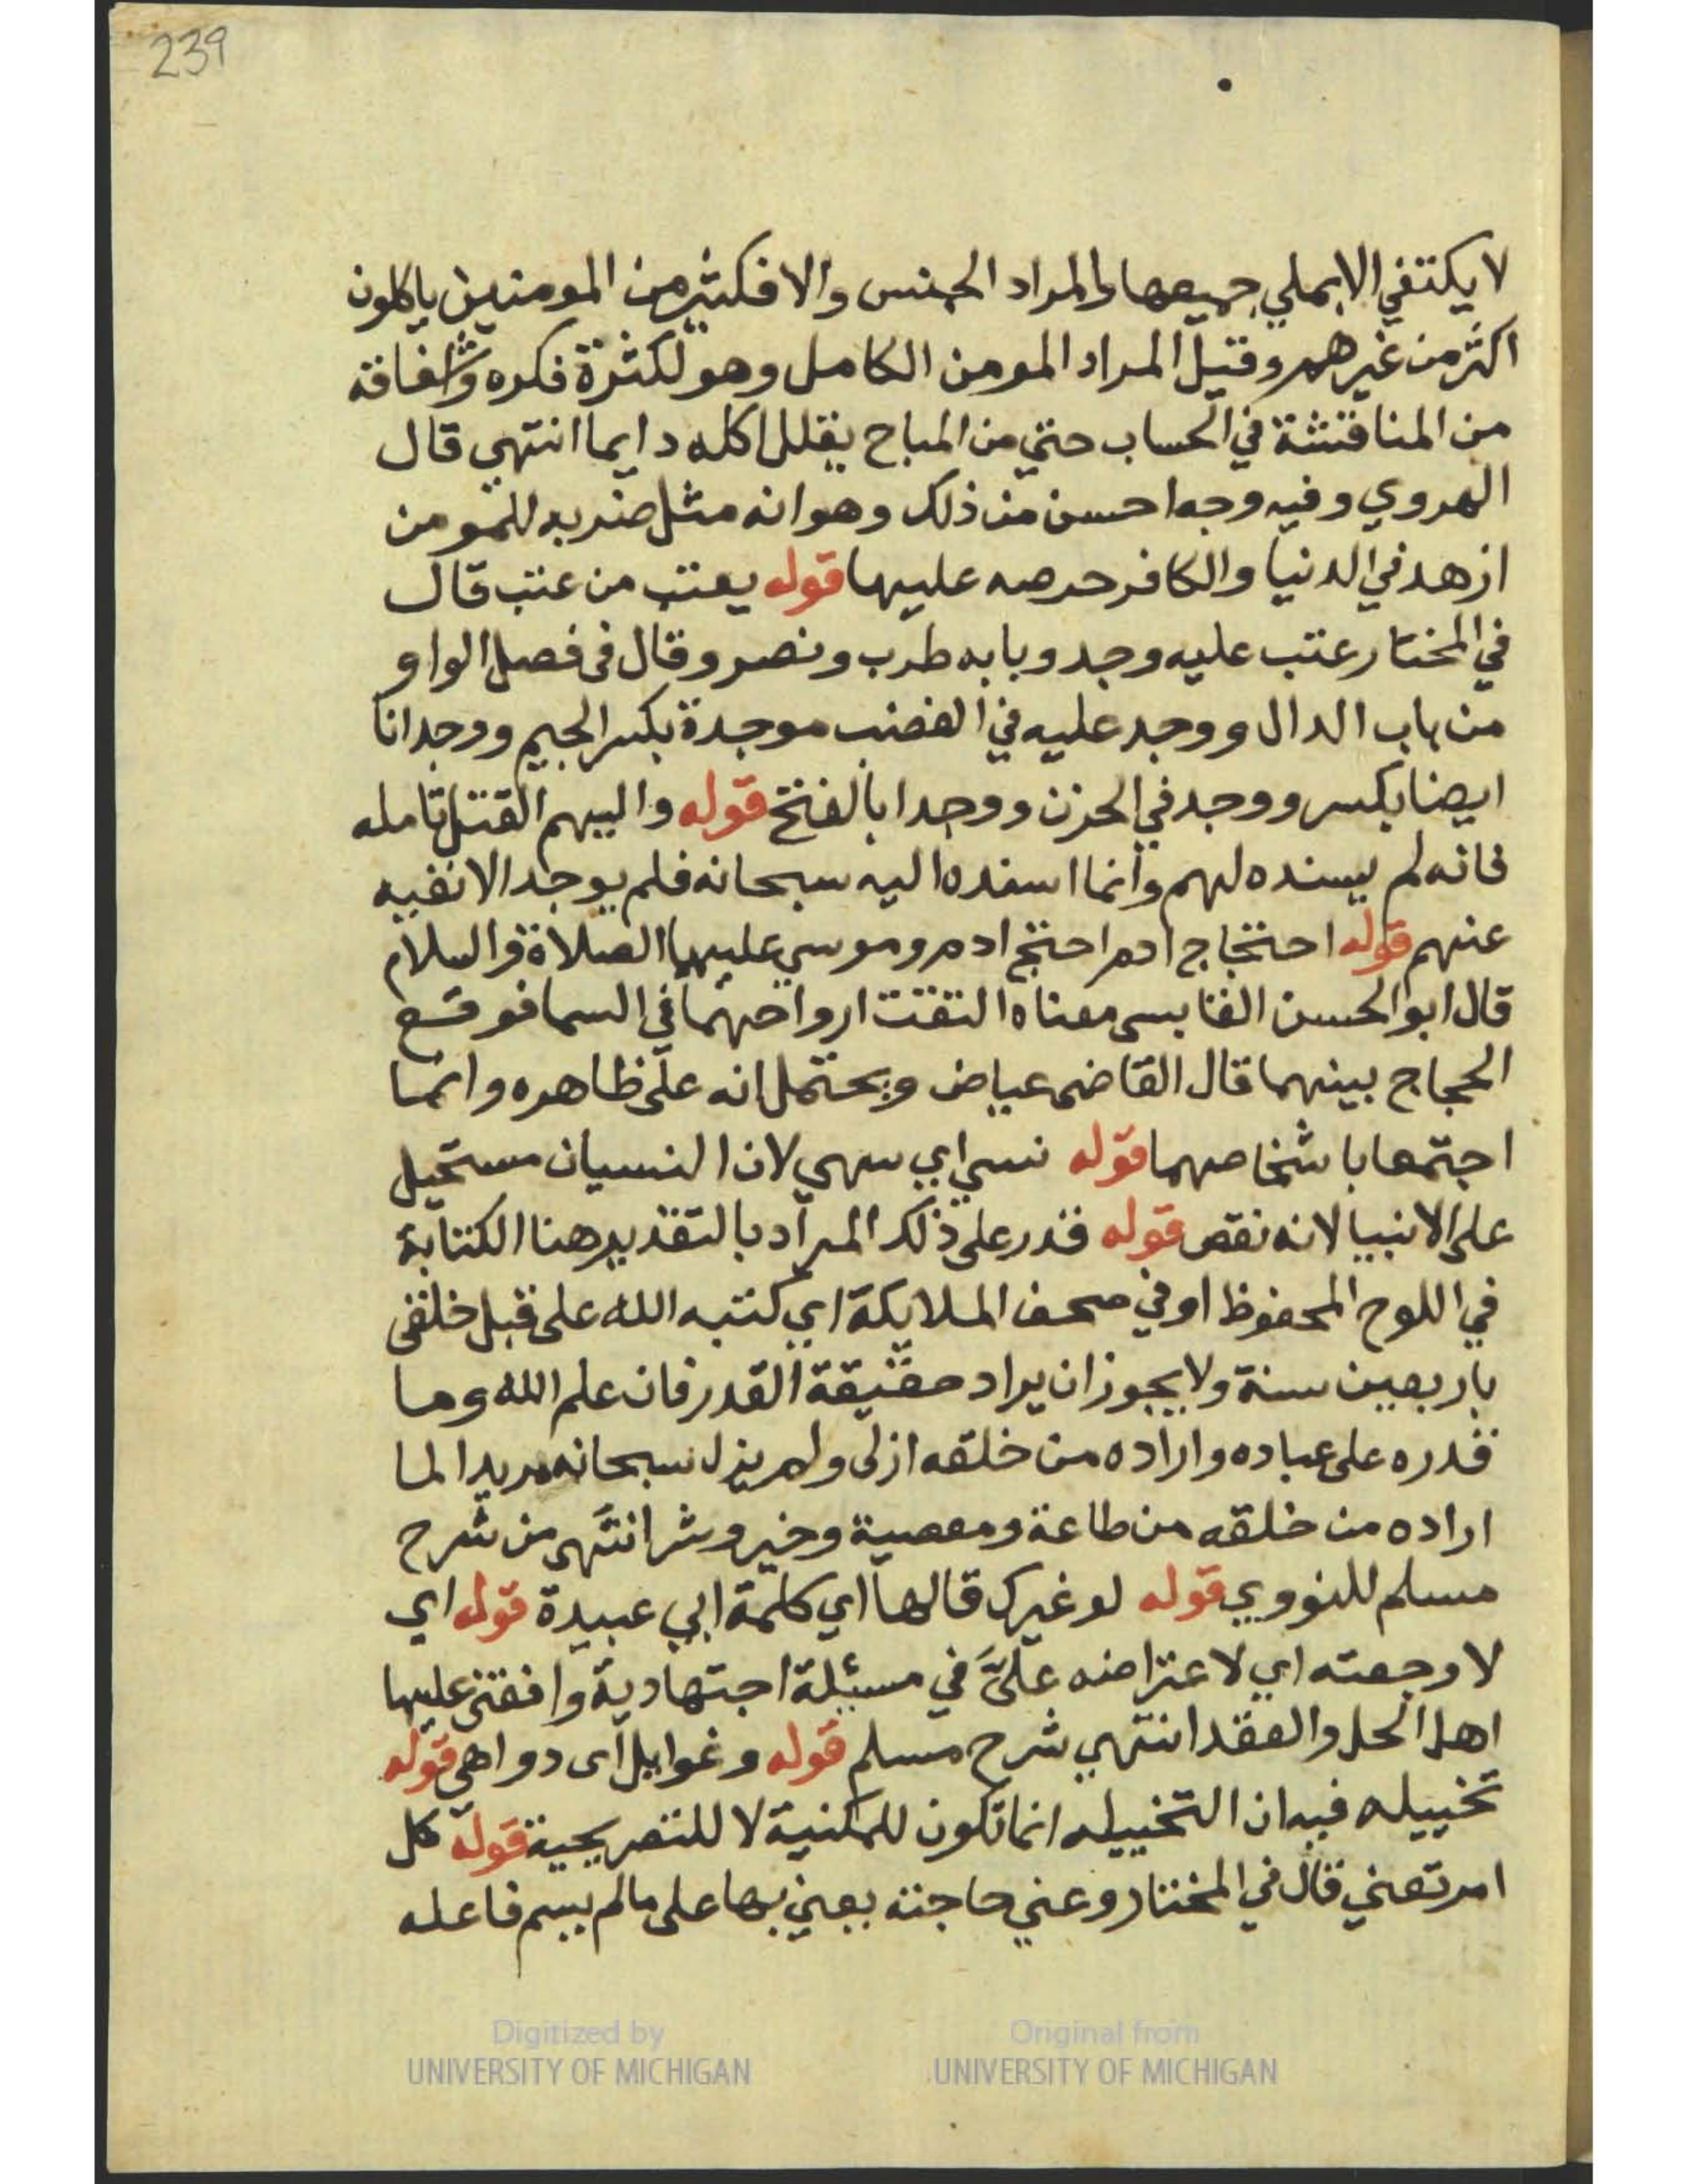 239
لا يكتفي الا بملي جميعها والمراد الجنس والا فكثير من المومنين ياكلون
اكثر من غيرهم وقيل المراد المومن الكامل وهو لكثرة فكره واشفاقه
من المناقشة في الحساب حتي من المباح يقلل اكله دايما انتهي قال
الهروي وفيه وجه احسن من ذلك وهو انه مثل ضربه للمومن
ازهد في الدنيا والكافر حرصه عليها قوله يعتب من عتب قال
في المختار عتب عليه وجد وبابه طرب ونصر وقال فى فصل الواو
من باب الدال ووجد عليه في الغضب موجدة بكسر الجيم ووجدانا
ايضا بكسر ووجد في الحزن ووجدا بالفتح قوله واليهم القتل تامله
فانه لم يسنده لهم وانما اسنده اليه سبحانه فلم يوجد الا نفيه
عنهم قوله احتجاج ادم احتج ادم وموسي عليهما الصلاة والسلام
قال ابو الحسن القابسى معناه التقت ارواحهما في السما فوقع
الحجاج بينهما قال القاضى عياض ويحتمل انه على ظاهره وانما
اجتمعا باشخاصهما قوله نسي اي سهي لان النسيان مستحيل
على الانبيا لانه نقص قوله قدر على ذلك المراد بالتقدير هنا الكتابة
في اللوح المحفوظ او في صحف الملايكة اي كتبه الله على قبل خلقى
باربعين سنة ولا يجوز ان يراد حقيقة القدر فان علم الله وما
قدره على عباده واراده من خلقه ازلى ولم يزل سبحانه مريدا لما
اراده من خلقه من طاعة ومعصية وخير وشر انتهى من شرح
مسلم للنووي قوله لو غيرك قالها اي كلمة ابي عبيدة قوله اي
لا وجعته اي لاعتراضه علىَّ في مسئلة اجتهادية وافقنى عليها
اهل الحل والعقد انتهي شرح مسلم قوله وغوايل اى دواهى قوله
تخييله فيه ان التخييله انما تكون للمكنية لا للتصريحية قوله كل
امر تعني قال في المختار وعني حاجته بعني بها على ما لم يسم فاعله
Digitized by
UNIVERSITY OF MICHIGAN
Original from
UNIVERSITY OF MICHIGAN